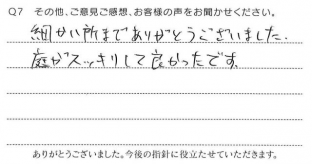 Q7 その他、ご意見ご感想、お客様の声をお聞かせください。
細かい所までありがとうございました.
庭がスッキリして良かったです.
ありがとうございました。今後の指針に役立たせていただきます。